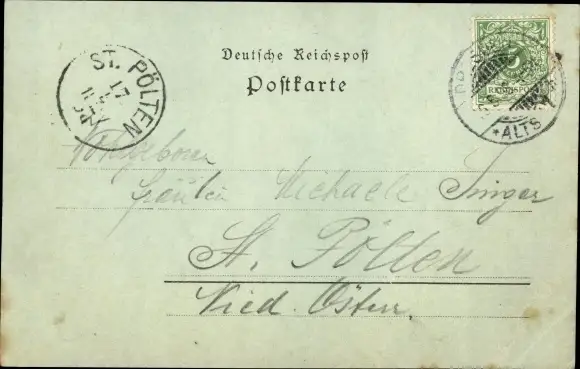 Deutsche Reichspost
Postkarte
ST. PÖLTEN
17
REICHSPOST
*ALTS
Wohlgeboren
Fräulein Michaele Singer
St. Pölten
Nied. Österr.